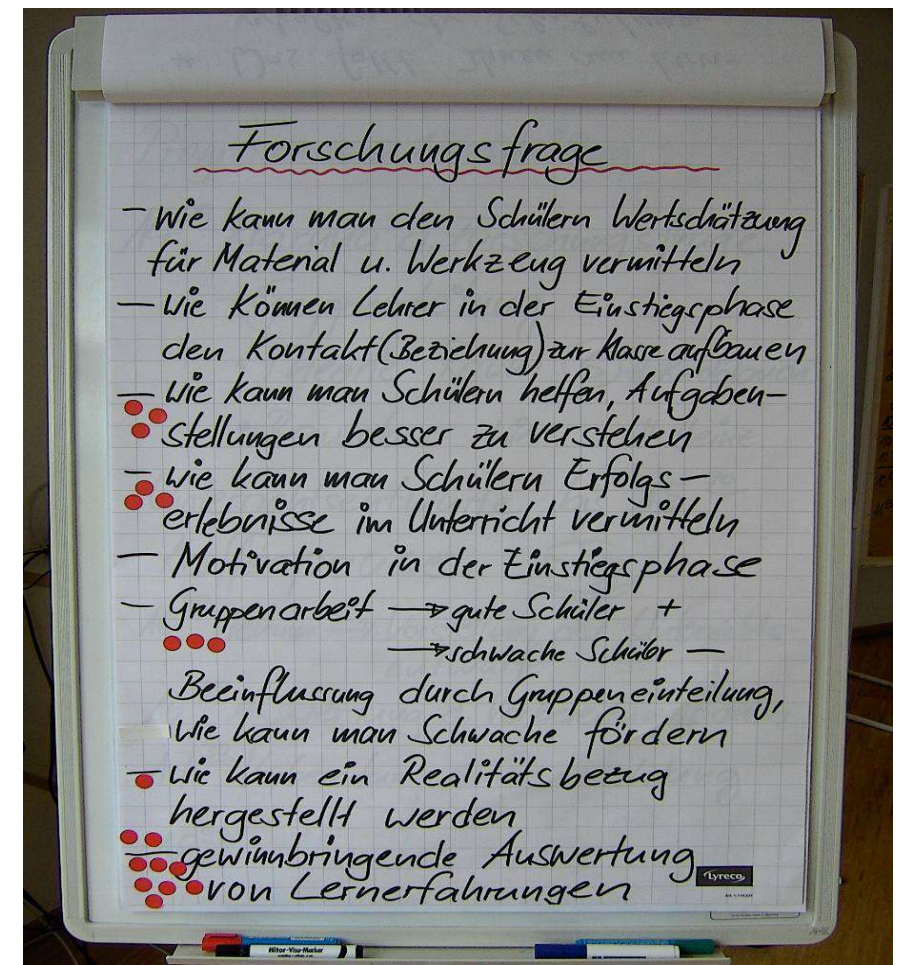 Forschungsfrage
- Wie kann man den Schülern Wertschätzung
für Material u. Werkzeug vermitteln
- Wie können Lehrer in der Einstiegsphase
den Kontakt (Beziehung) zur Klasse aufbauen
- Wie kann man Schülern helfen, Aufgaben-
stellungen besser zu verstehen
- Wie kann man Schülern Erfolgs-
erlebnisse im Unterricht vermitteln
- Motivation in der Einstiegsphase
- Gruppenarbeit → gute Schüler +
→ schwache Schüler -
Beeinflussung durch Gruppeneinteilung,
Wie kann man Schwache fördern
- Wie kann ein Realitätsbezug
hergestellt werden
- gewinnbringende Auswertung
von Lernerfahrungen
Lyreco